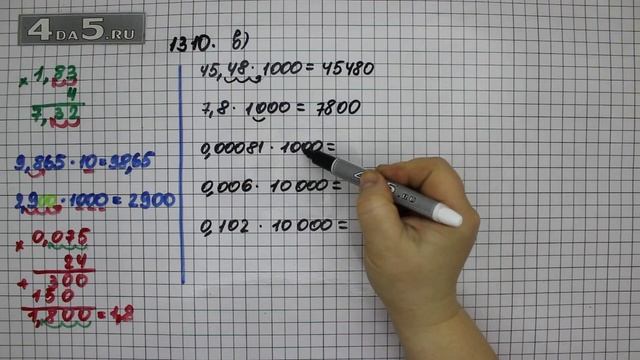 4DA5.RU
1310. в)
× 1,83
4
7,32
9,865 · 10 = 98,65
2,900 · 1000 = 2900
× 0,075
24
+ 300
150
1,800 = 1,8
45,48 · 1000 = 45480
7,8 · 1000 = 7800
0,00081 · 1000 =
0,006 · 10 000 =
0,102 · 10 000 =